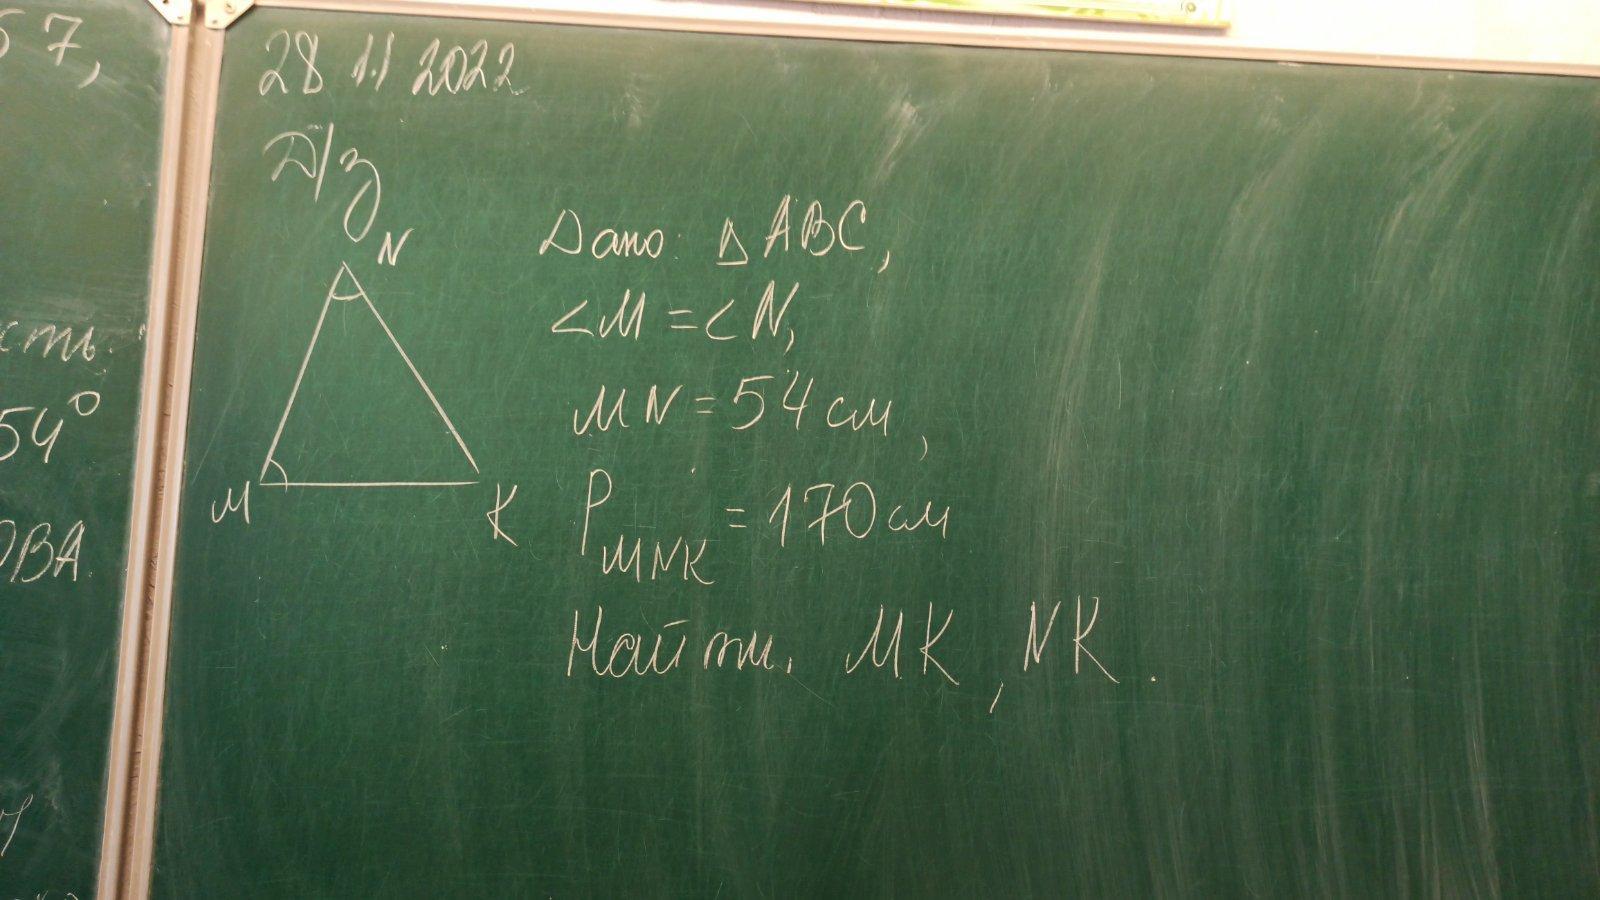 57,
сть:
54°
ОВА
28 11 2022
Д/з
N
M
K
Дано: Δ ABC,
∠M = ∠N,
MN = 54 см,
P MNK = 170 см
Найти. MK, NK.